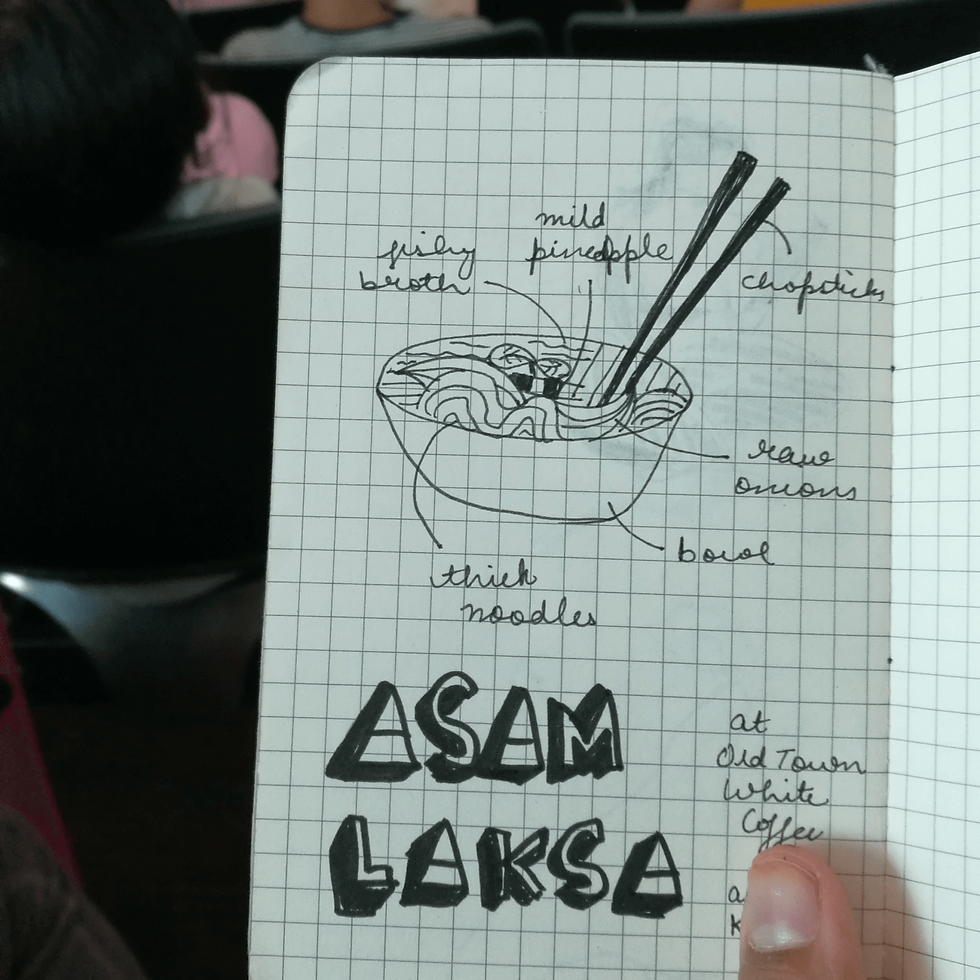 mild
pineapple
fishy
broth
chopsticks
raw
onions
bowl
thick
noodles
ASAM
LAKSA
at
Old Town
White
Coffee